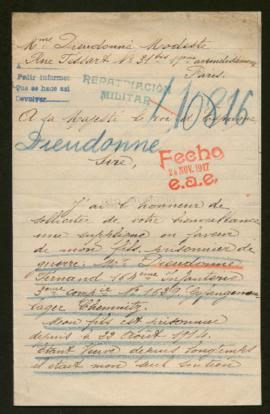 Mme Dieudonné Modeste
Rue Tessart No 31 bis 15me arrondissement
Paris.
A
Pedir informes
Que se haca asi
Devolver
REPATRIACIÓN
MILITAR
10816
A sa Majesté le roi d'Espagne
Dieudonne,
Sire,
Fecho
24 NOV. 1917
e.a.e.
J'ai l'honneur de
solliciter de votre bienveillance
une supplique en faveur
de mon fils, prisonnier de
guerre. Mr Dieudonné
Fernand 164me Infanterie
3eme compie No 1637 Gefangenen
lager Chemnitz.
Mon fils est prisonnier
depuis le 22 Août 1914.
Etant veuve depuis longtemps
il était mon seul soutien